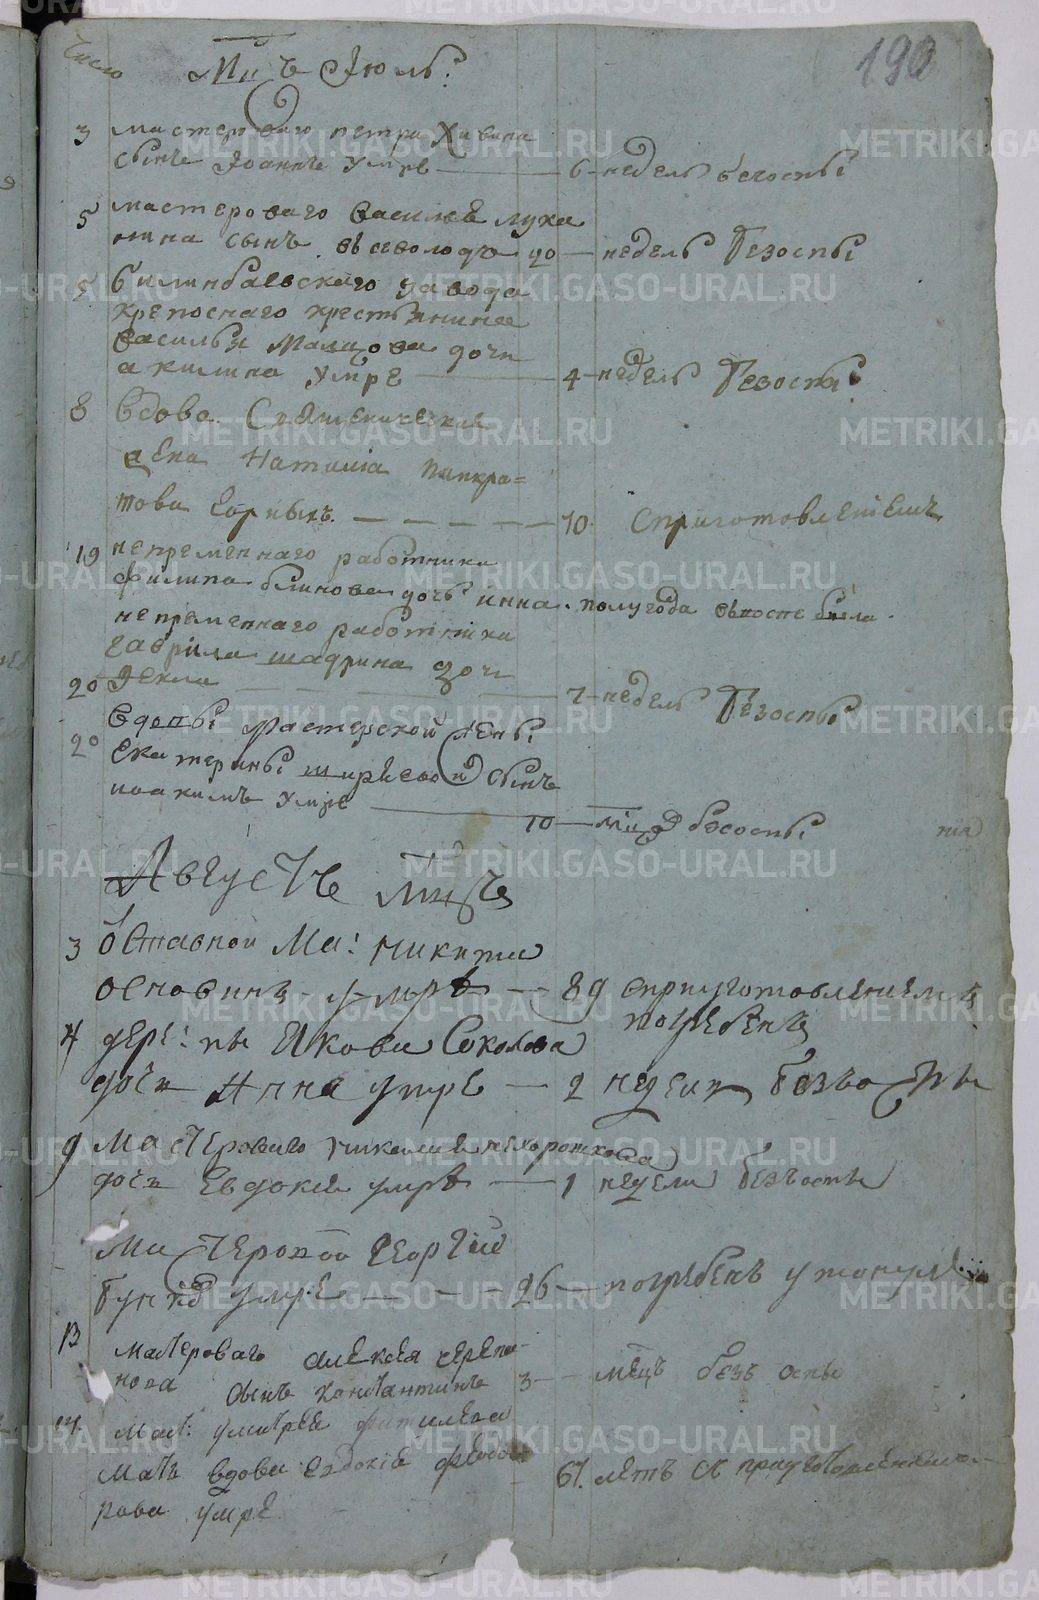 Число Мцъ Июль. 190
3 мастероваго петра Хивина
сынъ Иоаннъ умре 6 недель безоспы
5 мастероваго василья луха
нина сынъ всеволодъ 20 недель безоспы
5 билинбаевскаго завода
крепоснаго крестьянина
василья Малцова дочь
акилина умре 4 недель безоспы
8 вдова Священическая
жена Наталiа панкра=
това 70 Сприготовлениемъ
19 непременнаго работника
филипа блинова дочь анна полугода воспе была.
непременнаго работника
гаврила шадрина дочь
20 Фекла 7 недель безоспы
20 вдовы мастерской жены
екатерины ширяевой сынъ
иоакимъ умре
10 мцъ безоспы
Августъ мцъ
3 оставной Ма: никита
основинъ умре 89 сприуготовлениемъ
погребенъ
4 дере: ны Якова Соколова
дочь Анна умре 2 недели безъоспы
9 Мастероваго николая нехорошкова
дочь Евдокия умре 1 недели безъоспы
Мастеровой Георгий
умре 26 погребенъ утонул
13 мастероваго Алексея черепа
нова сынъ константинъ 3 мецъ безъ оспы
14 маст: дмитрея
мать вдова евдокiя федо
рова умре 67. летъ съ приуготовлениемъ
METRIKI.GASO-URAL.RU